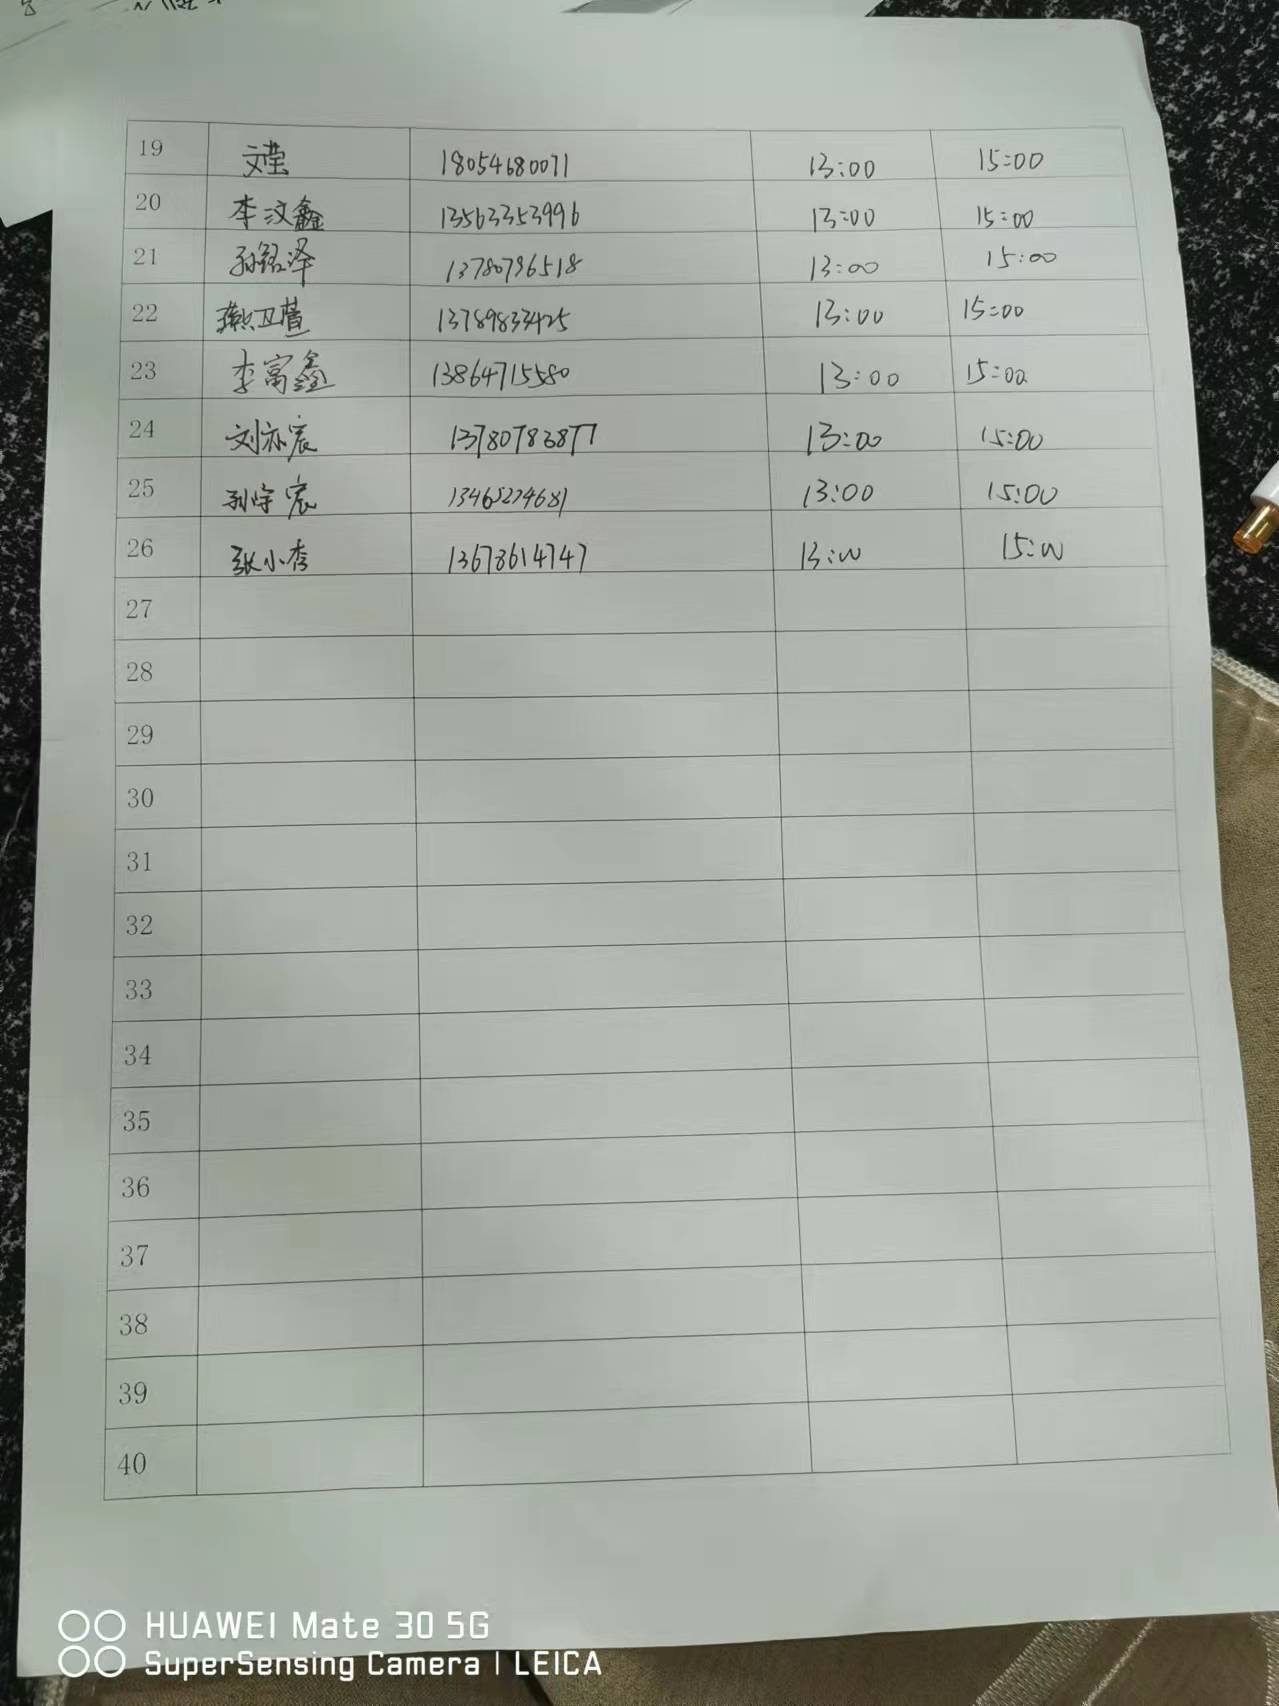 19 文莹 18054680071 13:00 15:00
20 李汶鑫 13563353996 13:00 15:00
21 孙铭泽 13780796518 13:00 15:00
22 13789833425 13:00 15:00
23 李富鑫 13864715580 13:00 15:00
24 刘亦宸 13780783877 13:00 15:00
25 宸 13465274681 13:00 15:00
26 张小杏 13678614747 13:00 15:00
27
28
29
30
31
32
33
34
35
36
37
38
39
40
HUAWEI Mate 30 5G
SuperSensing Camera | LEICA